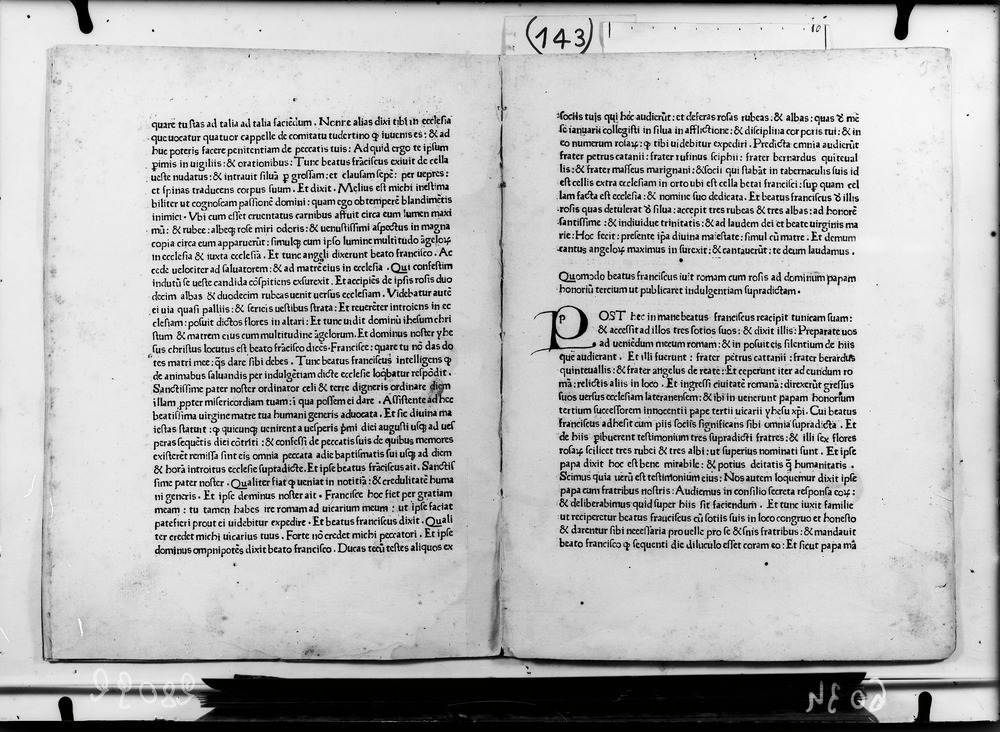 (143)
10
quare tu stas ad talia ad talia faciēdum. Nonne alias dixi tibi in ecclesia
que uocatur quatuor cappelle de comitatu tudertino ꝙ iuuenis es: & ad
huc poteris facere penitentiam de peccatis tuis: Ad quid ergo te ipsum
pimis in uigiliis: & orationibus: Tunc beatus frāciscus exiuit de cella
ueste nudatus: & intrauit siluā ꝑ grossam: et clausam sepe: per uepres:
et spinas traducens corpus suum. Et dixit. Melius est michi inestima
biliter ut cognoscam passionē domini: quam ego obtemperē blandimētis
inimici. Vbi cum esset cruentatus carnibus affuit circa eum lumen maxi
mū: & rubee: albeqȝ rose miri odoris: & uenustissimi aspectus in magna
copia circa eum apparuerūt: simulqȝ cum ipso lumine multitudo āgeloꝝ
in ecclesia & iuxta ecclesiā. Et tunc angeli dixerunt beato francisco. Ac
cede uelociter ad saluatorem: & ad matrē eius in ecclesia. Qui confestim
indutū se ueste candida cōspitiens exsurexit. Et accipiēs de ipsis rosis duo
decim albas & duodecim rubeas uenit uersus ecclesiam. Videbatur autē
ei uia quasi palliis: & sericis uestibus strata: Et reuerēter introiens in ec
clesiam: posuit dictos flores in altari: Et tunc uidit dominū ihesum chri
stum & matrem eius cum multitudine āgelorum. Et dominus noster yhe
sus christus locutus est beato frācisco dicēs. Francisce: quare tu nō das do
tes matri mee: q̄s dare sibi debes. Tunc beatus franciscus intelligens ꝙ
de animabus saluandis per indulgētiam dicte ecclesie loq̄batur respōdit.
Sanctissime pater noster ordinator celi & terre digneris ordinare diem
illam ꝓpter misericordiam tuam: i qua possem ei dare. Assistente ad hec
beatissima uirgine matre tua humani generis aduocata. Et sic diuina ma
iestas statuit: ꝙ quicunqȝ uenirent a uesperis p̄mi diei augusti usqȝ ad ues
peras sequētis diei cōtriti: & confessi de peccatis suis de quibus memores
existerēt remissa sint eis omnia peccata a die baptismatis sui usqȝ ad diem
& horā introitus ecclesie supradicte. Et ipse beatus frāciscus ait. Sanctis
sime pater noster. Qualiter fiat ꝙ ueniat in notitiā: & credulitatē huma
ni generis. Et ipse dominus noster ait. Francisce hoc fiet per gratiam
meam: tu tamen habes ire romam ad uicarium meum: ut ipse faciat
patefieri prout ei uidebitur expedire. Et beatus franciscus dixit. Quali
ter credet michi uicarius tuus. Forte nō credet michi peccatori. Et ipse
dominus omnpipotēs dixit beato francisco. Ducas tecū testes aliquos ex
sociis tuis qui hec audierūt: et deferas rosas rubeas: & albas: quas ī mē
se ianuarii collegisti in silua in afflictione: & disciplina corporis tui: & in
eo numerum rosaꝝ: ꝙ tibi uidebitur expediri. Predicta omnia audierūt
frater petrus catanii: frater rufinus sciphii: frater bernardus quiteual
lis: & frater masseus marignani: & socii qui stabāt in tabernaculis suis id
est cellis extra ecclesiam in orto ubi est cella beati francisci: sup quam cel
lam facta est ecclesia: & nomine suo dedicata. Et beatus franciscus ī illis
rosis quas detulerat ī silua: accepit tres rubeas & tres albas: ad honorē
santissime: & indiuidue trinitatis: & ad laudem dei et beate uirginis ma
rie: Hoc fecit: presente ipā diuina maiestate: simul cū matre. Et demum
cantus angeloꝝ maximus in surexit: & cantauerūt: te deum laudamus.
Quomodo beatus franciscus iuit romam cum rosis ad dominum papam
honoriū tercium ut publicaret indulgentiam supradictam.
POST hec in mane beatus franciscus reacipit tunicam suam:
& accessit ad illos tres sotios suos: & dixit illis: Preparate uos
ad ueniēdum mecum romam: & in posuit eis silentium de hiis
que audierant. Et illi fuerunt: frater petrus cattanii: frater berardus
quinteuallis: & frater angelus de reate: Et ceperunt iter ad eundum ro
mā: relictis aliis in loco. Et ingressi ciuitatē romanā: direxerūt gressus
suos uersus ecclesiam lateranensem: & ibi in uenerunt papam honorium
tertium successorem innocentii pape tertii uicarii yhesu xp̄i. Cui beatus
franciscus adhesit cum piis sociis significans sibi omnia supradicta. Et
de hiis pibuerent testimonium tres supradicti fratres: & illi sex flores
rosaꝝ scilicet tres rubei & tres albi: ut superius nominati sunt. Et ipse
papa dixit hoc est bene mirabile: & potius deitatis q̄ humanitatis.
Scimus quia uerū est testimonium eius: Nos autem loquemur dixit ipse
papa cum fratribus nostris: Audiemus in consilio secreta responsa eoꝝ:
& deliberabimus quid super hiis sit faciendum. Et tunc iuxit familie
ut reciperetur beatus frauciscus cū sotiis suis in loco congruo et honesto
& darentur sibi necessaria pro uelle pro se & suis fratribus: & mandauit
beato francisco ꝙ sequenti die diluculo esset coram eo: Et sicut papa mā